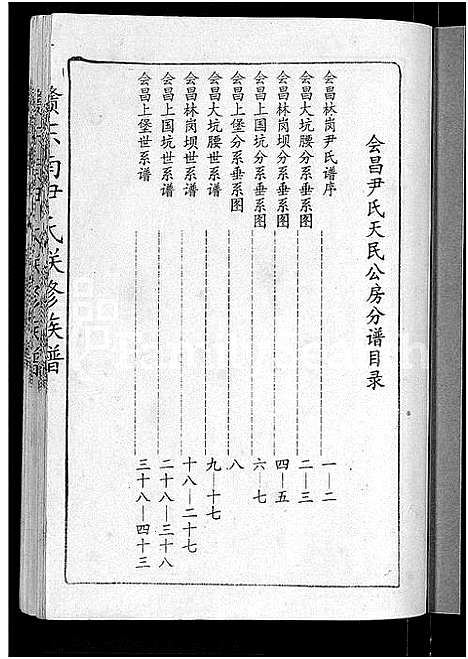 会昌尹氏天民公房分谱目录
会昌林岗尹氏谱序 一—二
会昌大坑腰分系垂系图 二—三
会昌林岗坝分系垂系图 四—五
会昌上国坑分系垂系图 六—七
会昌上堡分系垂系图 八
会昌大坑腰世系谱 九—十七
会昌林岗坝世系谱 十八—二十七
会昌上国坑世系谱 二十八—三十八
会昌上堡世系谱 三十八—四十三
南尹氏联修族谱